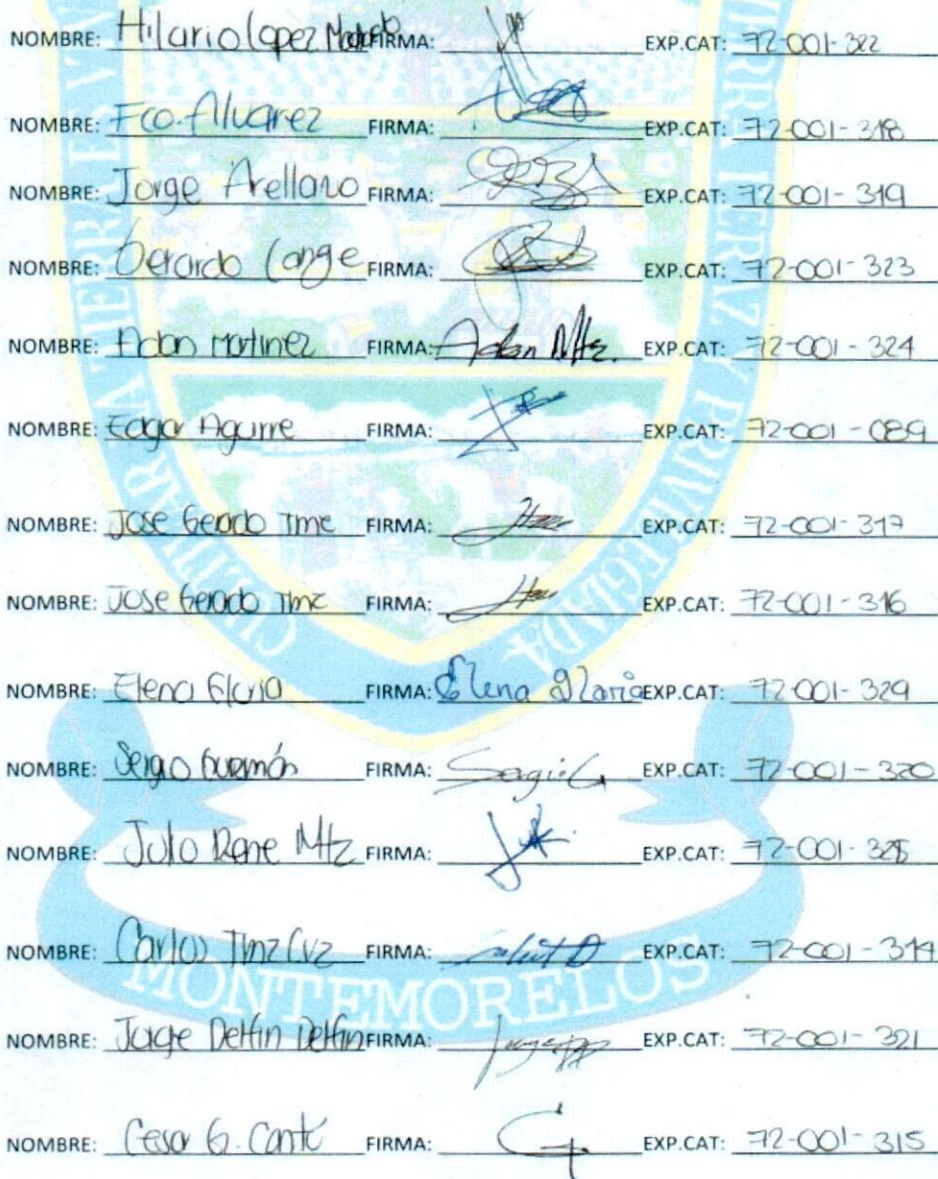 NOMBRE: Hilario Lopez FIRMA: EXP.CAT: 72-001-322
NOMBRE: Fco. Alvarez FIRMA: EXP.CAT: 72-001-318
NOMBRE: Jorge Arellano FIRMA: EXP.CAT: 72-001-319
NOMBRE: Gerardo Cange FIRMA: EXP.CAT: 72-001-323
NOMBRE: Adan Martinez FIRMA: Adan Mtz. EXP.CAT: 72-001-324
NOMBRE: Edgar Aguirre FIRMA: EXP.CAT: 72-001-089
NOMBRE: Jose Gerado Tmz FIRMA: EXP.CAT: 72-001-317
NOMBRE: Jose Gerado Tmz FIRMA: EXP.CAT: 72-001-316
NOMBRE: Elena Gloria FIRMA: Elena Gloria EXP.CAT: 72-001-329
NOMBRE: Sergio Guzmán FIRMA: Sergio G EXP.CAT: 72-001-320
NOMBRE: Julio Rene Mtz FIRMA: EXP.CAT: 72-001-325
NOMBRE: Carlos Tmz Cvz FIRMA: EXP.CAT: 72-001-314
NOMBRE: Jorge Delfin Delfin FIRMA: EXP.CAT: 72-001-321
NOMBRE: Cesar G. Cantú FIRMA: EXP.CAT: 72-001-315
TIERRA FERAZ Y PRIVILEGIADA
MONTEMORELOS